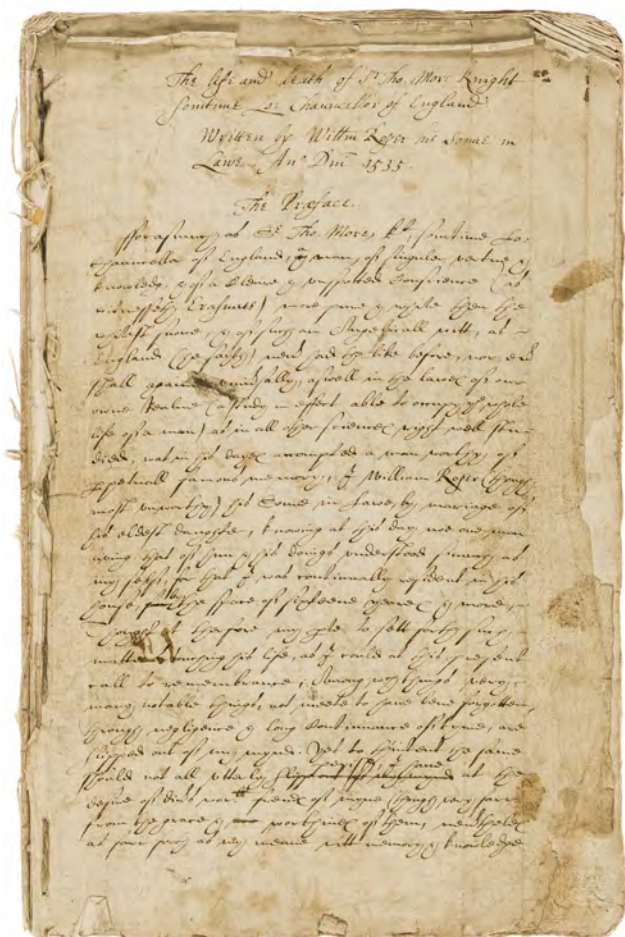 The life and death of Sr Tho. More Knight
sometime Lo: Chauncellor of England.
Written by Willm Roper his Sonne in
Lawe. Ano Dni 1535.
The Preface.
fforasmuch as Sr Tho. More, kt. sometime Lo:
Chauncellor of England, a man of singuler vertue &
knowledg, & of a cleare & unspotted conscience (as
witnesseth Erasmus) more pure & white then the
whitest snowe, & of such an Angelicall witt, as
England (he saith) never had the like before, nor ever
shall againe, universally, aswell in the lawes of our
owne Realme (a study in effect able to occupy the whole
life of a man) as in all other sciences right well stu-
died, was in his dayes accompted a man worthy of
perpetuall famous memory; I William Roper (though
most unworthy) his Sonne in Lawe, by mariage of
his eldest daughter, knowing at this day noe one man
living that of him & his doings understood soe much as
my selfe, for that I was continually resident in his
house, the space of sixteene yeares & more,
thought it therfore my parte to sett forth such
matters touching his life, as I could at this present
call to remembrance; Among which things very
many notable things, not meete to have bene forgotten,
through negligence & long continuance of tyme, are
slipped out of my mynd. Yet to th'intent the same
should not all utterly perish, I have at the
desire of divers wor: frends of myne (though very farr
from the grace & worthines of them, neverthelesse
as farr forth as my meane witt memory & knowledge